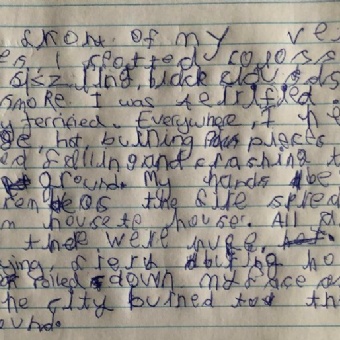 shore of my ve
es, I spotted across
sizzling, black clouds
smoke. I was terrified
y terrified. Everywhere, I
ge, hot, burning places
ed falling and crashing t
ground. My hands be
as the fire spred
m house to house. All
the were huge, hot.
ying, fiery burning ho
rolled down my face as
he city burned to the
ound.